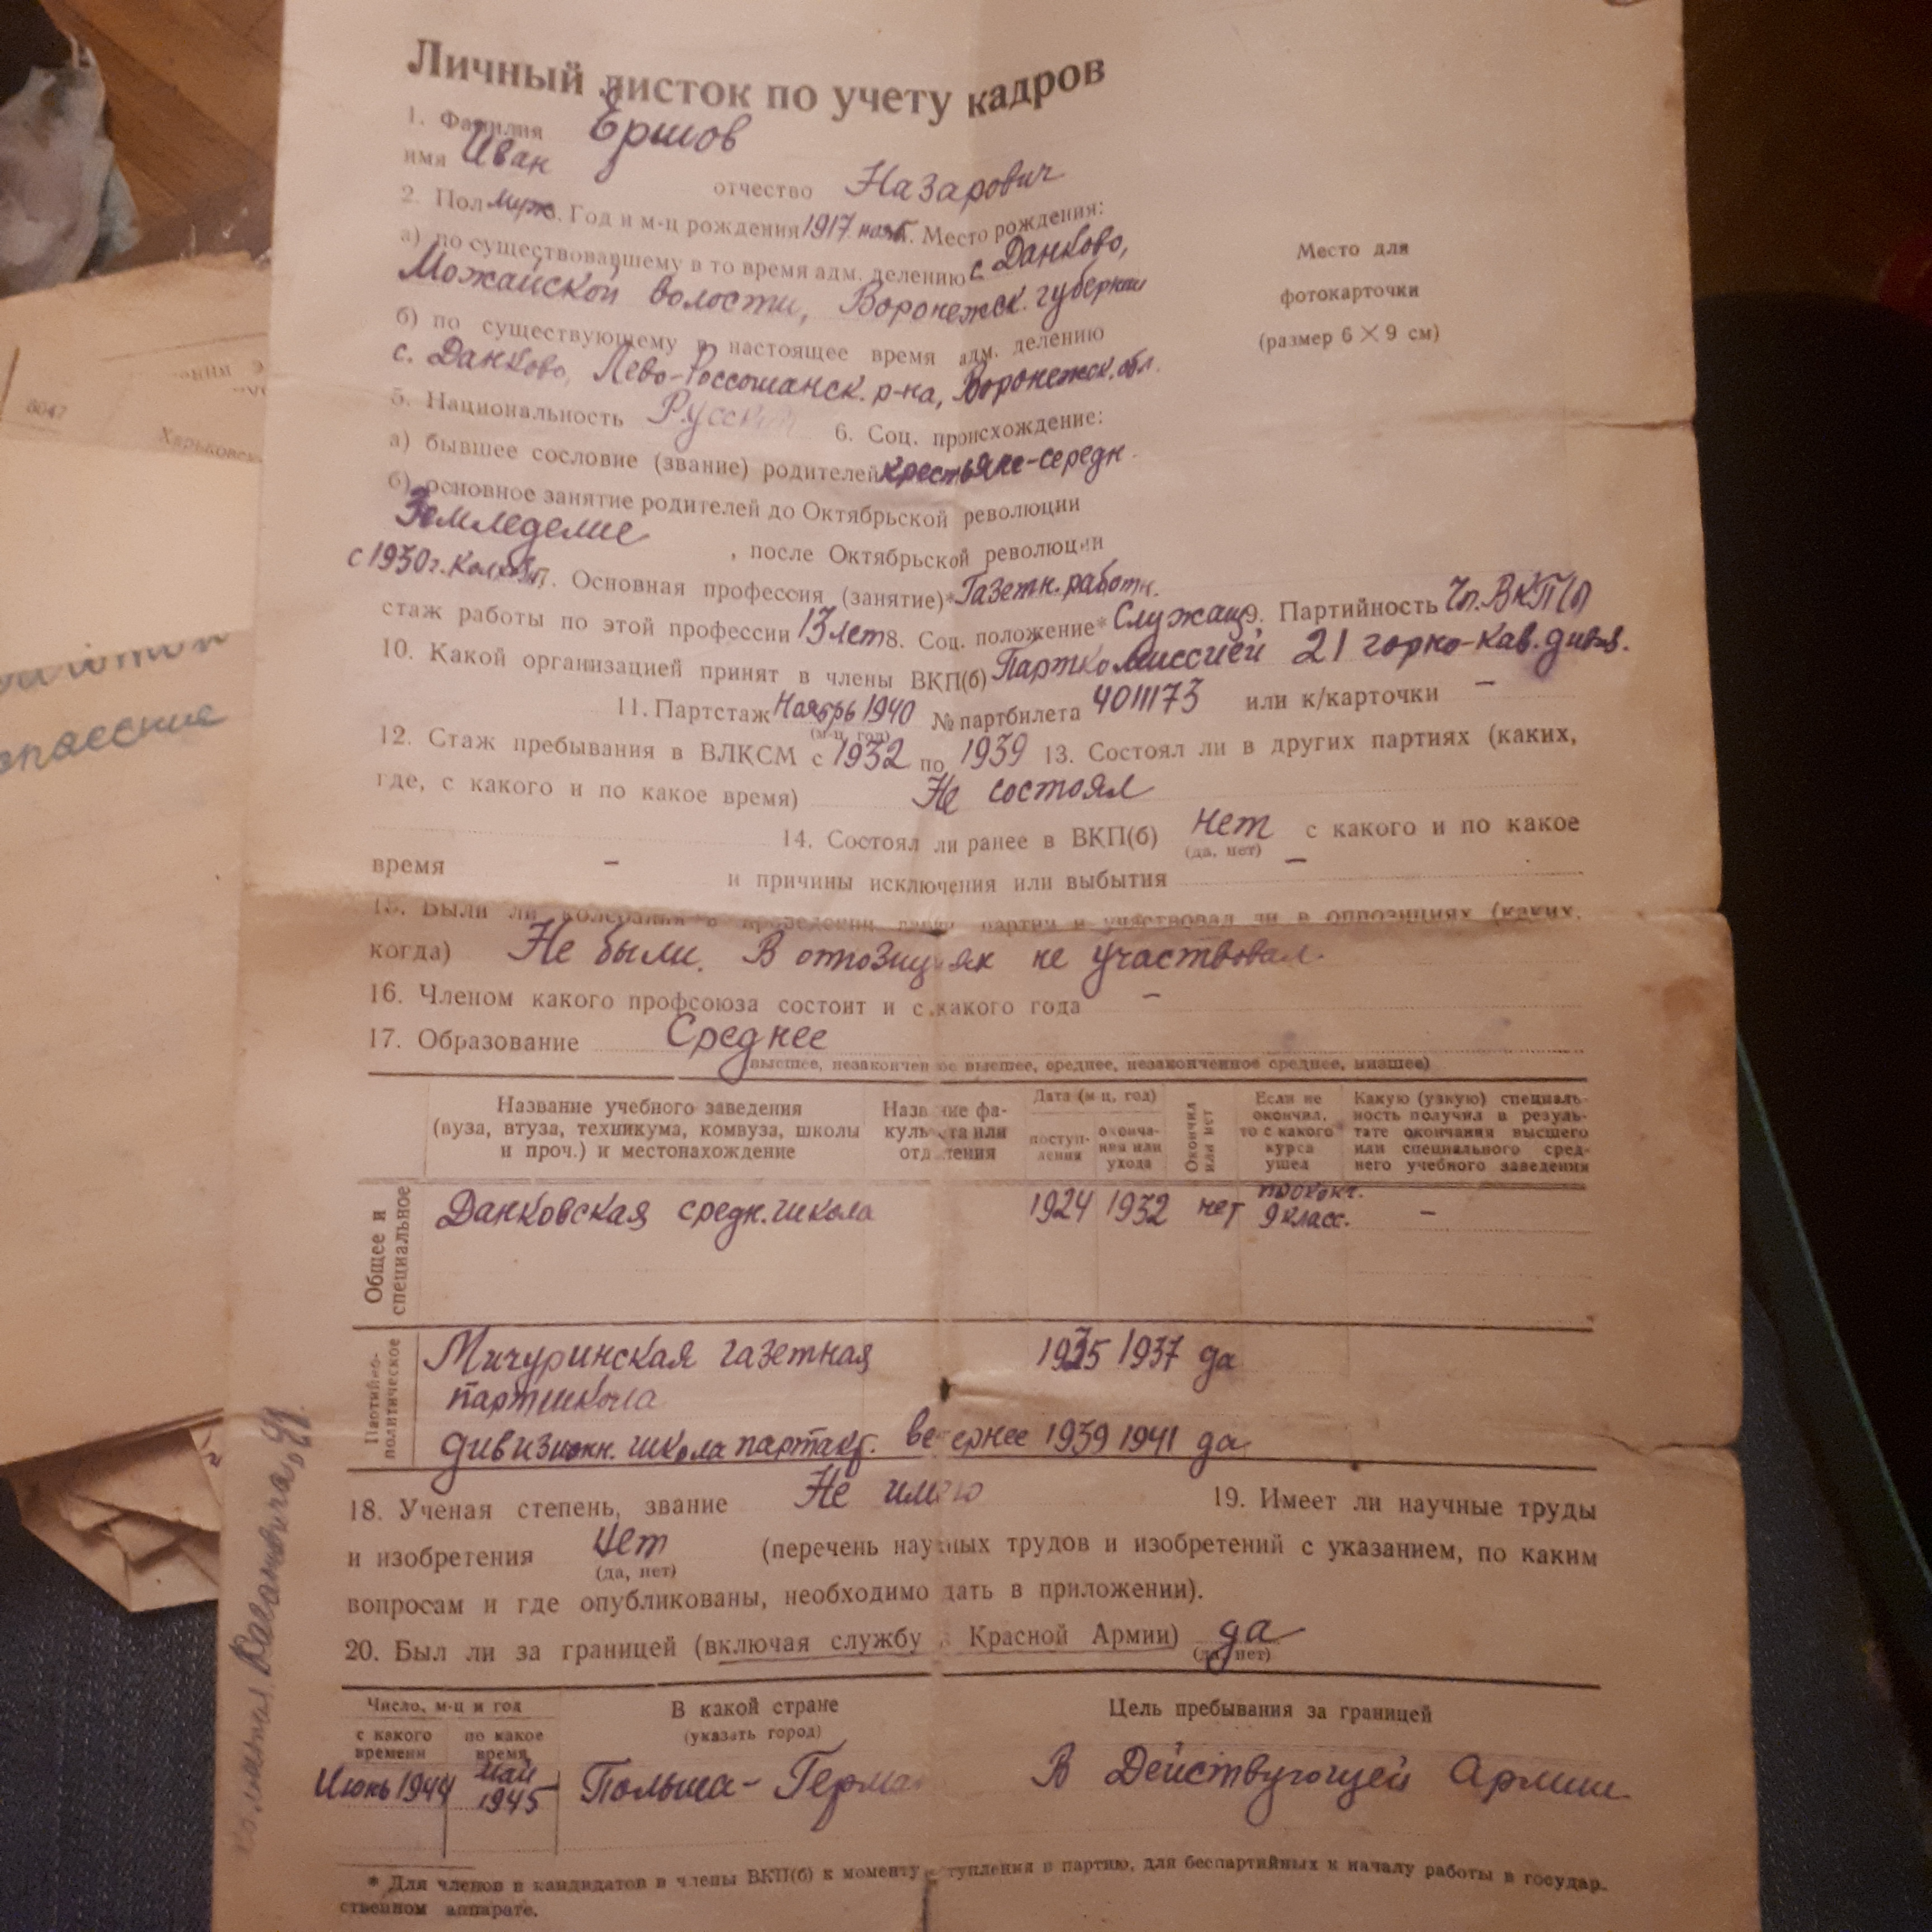 Личный листок по учету кадров
1. Фамилия Ершов
имя Иван отчество Назарович
2. Пол муж 3. Год и м-ц рождения 1917 нояб. Место рождения:
а) по существовавшему в то время адм. делению с. Данково,
Можайской волости, Воронежск. губернии
б) по существующему в настоящее время адм. делению
с. Данково, Лево-Россошанск. р-на, Воронежск. обл.
5. Национальность Русский 6. Соц. происхождение:
а) бывшее сословие (звание) родителей крестьяне-середн.
б) основное занятие родителей до Октябрьской революции
Земледелие, после Октябрьской революции
с 1930 г. 7. Основная профессия (занятие)* Газетн. работн.
стаж работы по этой профессии 13 лет 8. Соц. положение* Служащ 9. Партийность Чл. ВКП(б)
10. Какой организацией принят в члены ВКП(б) Парткомиссией 21 горно-кав. дивиз.
11. Партстаж Ноябрь 1940 № партбилета 4011173 или к/карточки –
(м-ц, год)
12. Стаж пребывания в ВЛКСМ с 1932 по 1939 13. Состоял ли в других партиях (каких,
где, с какого и по какое время) Не состоял
14. Состоял ли ранее в ВКП(б) нет с какого и по какое
(да, нет)
время – и причины исключения или выбытия –
15. Были ли колебания в проведении линии партии и участвовал ли в оппозициях (каких,
когда) Не были. В опозициях не участвовал.
16. Членом какого профсоюза состоит и с какого года –
17. Образование Среднее
(высшее, незаконченное высшее, среднее, незаконченное среднее, низшее)
Название учебного заведения
(вуза, втуза, техникума, комвуза, школы
и проч.) и местонахождение
Название фа-
культета или
отделения
Дата (м-ц, год)
поступ-
ления
оконча-
ния или
ухода
Окончил
или нет
Если не
окончил,
то с какого
курса
ушел
Какую (узкую) специаль-
ность получил в резуль-
тате окончания высшего
или специального сред-
него учебного заведения
Общее и
специальное
Данковская средн. школа 1924 1932 нет
9 класс. –
Партийно-
политическое
Мичуринская газетная 1935 1937 да
партшкола
дивизионн. школа партакт. вечернее 1939 1941 да
18. Ученая степень, звание Не имею 19. Имеет ли научные труды
и изобретения Нет (перечень научных трудов и изобретений с указанием, по каким
(да, нет)
вопросам и где опубликованы, необходимо дать в приложении).
20. Был ли за границей (включая службу в Красной Армии) да
(да, нет)
Число, м-ц и год
с какого
времени
по какое
время
В какой стране
(указать город)
Цель пребывания за границей
Июнь 1944 Май
1945 Польша – Герма В Действующей Армии
* Для членов и кандидатов в члены ВКП(б) к моменту вступления в партию, для беспартийных к началу работы в государ-
ственном аппарате.
8047
Харьковск